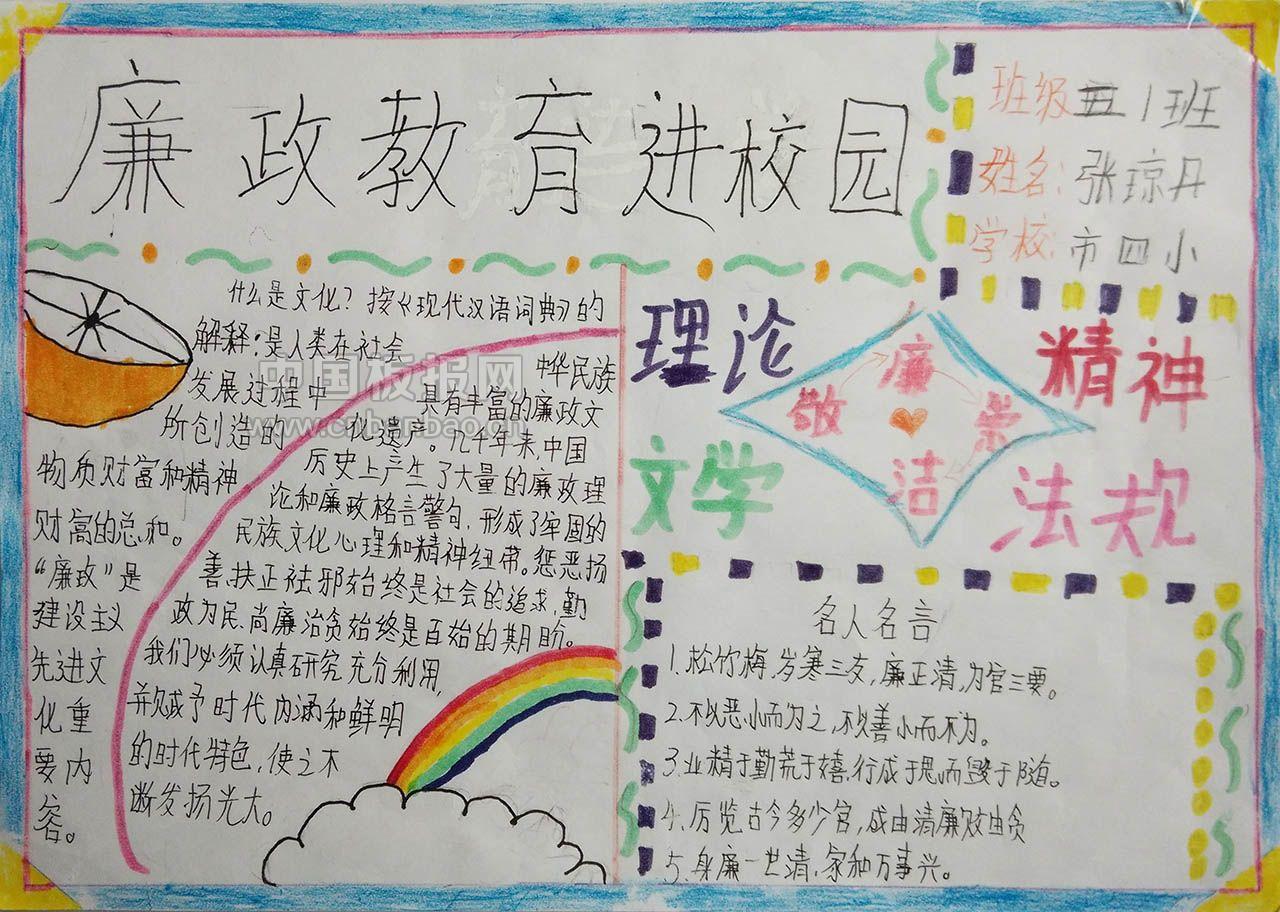 廉政教育进校园
班级五1班
姓名:张琼丹
学校:市四小
什么是文化?按《现代汉语词典》的
解释:是人类在社会
发展过程中
所创造的
物质财富和精神
财富的总和。
“廉政”是
建设主义
先进文
化重
要内
容。
中华民族
具有丰富的廉政文
化遗产。几千年来,中国
历史上产生了大量的廉政理
论和廉政格言警句,形成了牢固的
民族文化心理和精神纽带。惩恶扬
善,扶正祛邪始终是社会的追求,勤
政为民、尚廉治贪始终是百始的期盼。
我们必须认真研究充分利用,
并赋予时代内涵和鲜明
的时代特色,使之不
断发扬光大。
理论
精神
文学
法规
廉
敬
崇
洁
名人名言
1.松竹梅,岁寒三友,廉正清,为官三要。
2.不以恶小而为之,不以善小而不为。
3.业精于勤荒于嬉,行成于思而毁于随。
4.历览古今多少官,成由清廉败由贪
5.身廉一世清,家和万事兴。
中国板报网
www.cnbanbao.cn